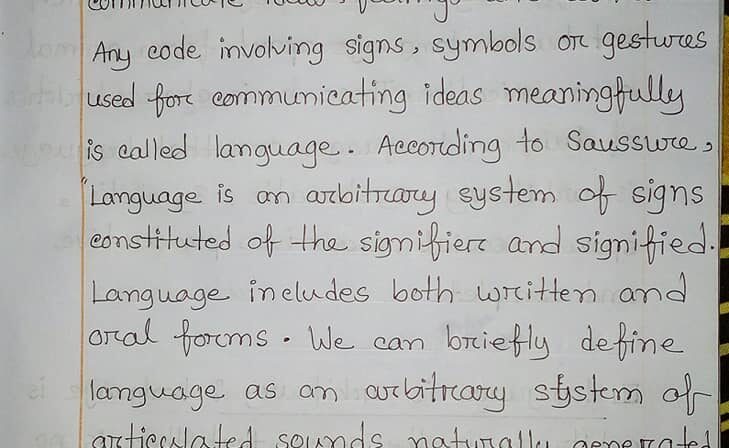 communicate ideas, feelings
Any code involving signs, symbols or gestures
used for communicating ideas meaningfully
is called language. According to Saussure,
"Language is an arbitrary system of signs
constituted of the signifier and signified.
Language includes both written and
oral forms. We can briefly define
language as an arbitrary system of
articulated sounds naturally generated